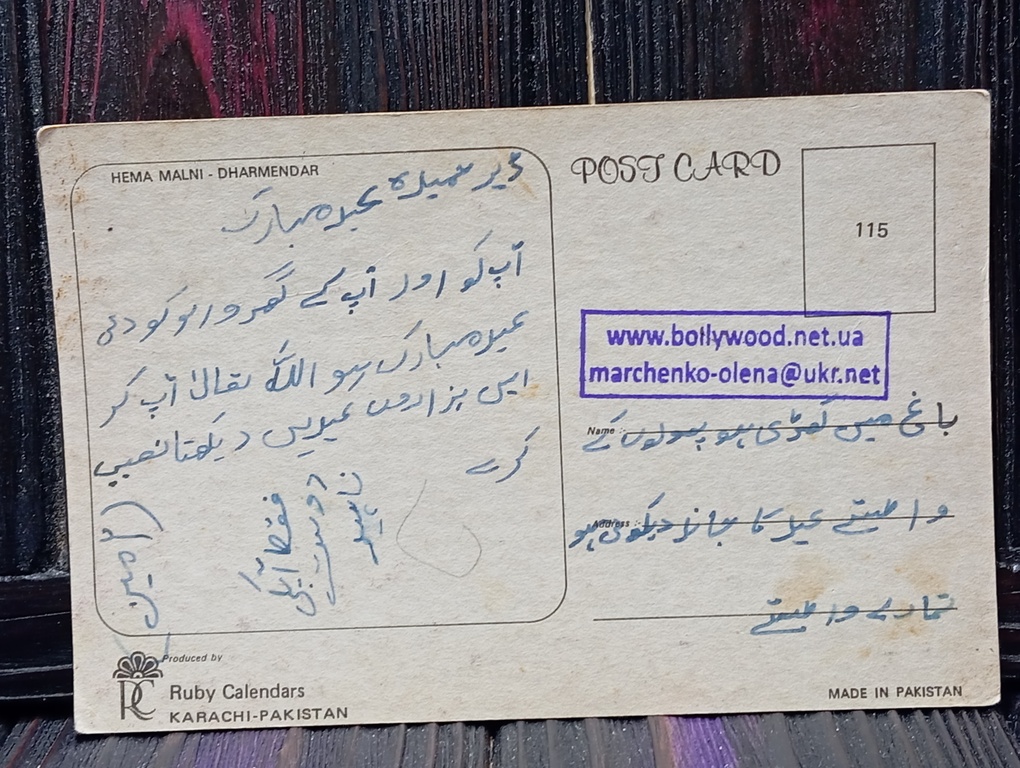 HEMA MALNI - DHARMENDAR
ڈیر عید مبارک
آپ کو اور آپ کے گھر والو کو دی
عید مبارک ہو اللہ تعالیٰ آپ کر
ایسی ہزاروں عیدیں دیکھنا نصیب
کرے
(آمین)
فقط آپکی
دوست
ناہید
POST CARD
115
www.bollywood.net.ua
marchenko-olena@ukr.net
Name :-
باغ میں کھڑی ہو پھولوں کے
Address :-
واسطے عید کا بہانا ہو
تمارے واسطے
Produced by
RC
Ruby Calendars
KARACHI-PAKISTAN
MADE IN PAKISTAN